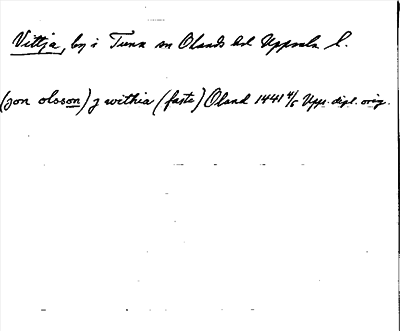 Vittja, by i Tuna sn Olands hd Uppsala l.
(jon olsson) j withia (faste) Oland 1441 4/5 Upps. dipl. orig.